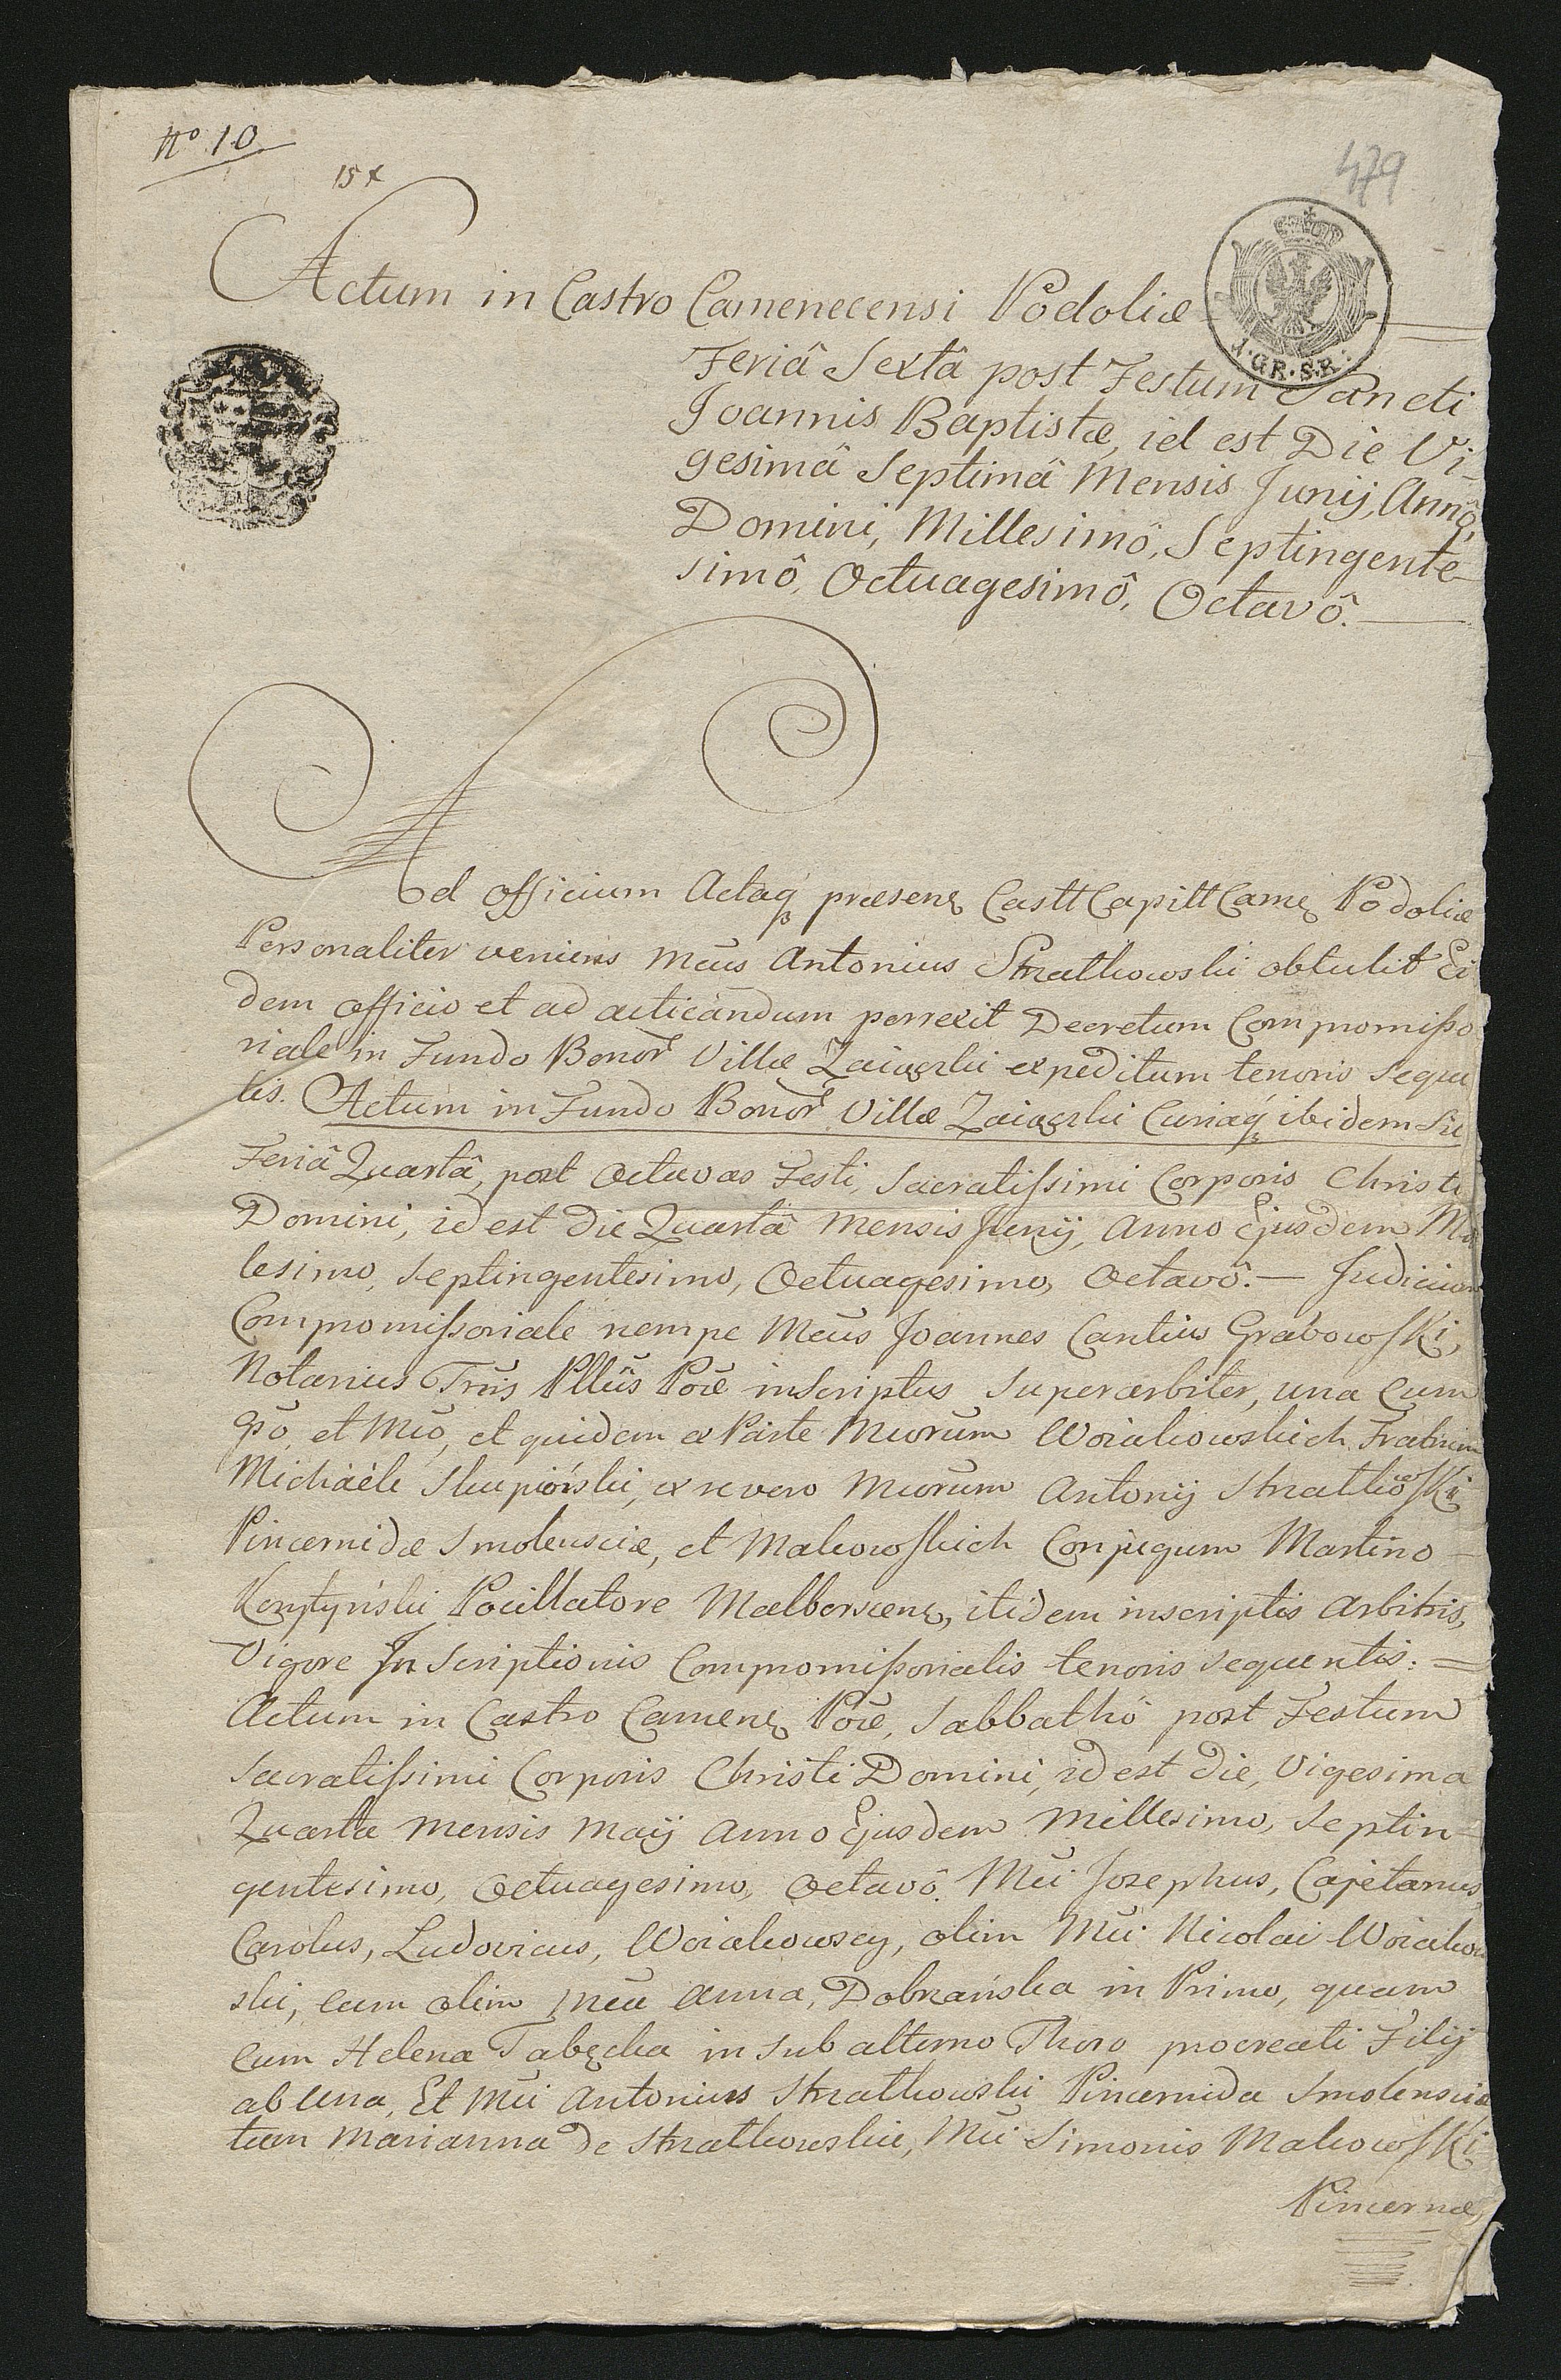 No 10
15 x
479
Actum in Castro Camenecensi Podoliæ
1·GR·S.R·
Feriâ Sextâ post Festum Sancti
Joannis Baptistæ, id est Die Vi-
gesimâ Septimâ Mensis Junij, Annô,
Domini, Millesimô, Septingente-
simô, Octuagesimô, Octavô.
Ad officium Actaq præsenˢ Castt Capitt Camˢ Podoliæ
Personaliter veniens Mcus Antonius Strzałkowski obtulit Ei
dem officio et ad acticandum porrexit Decretum Compromisso
riale in Fundo Bonor Villæ Zaiączki expeditum tenoris sequen
tis. Actum in Fundo Bonor Villæ Zaiączki Curiaq ibidem
Feriâ Quartâ, post Octavas Festi, Sacratissimi Corporis Christi
Domini, id est die Quartâ Mensis Junij, Anno Ejusdem Mil
lesimo, Septingentesimo, Octuagesimo, Octavô. — Judicium
Compromissoriale nempe Mcus Joannes Cantius Grabowski,
Notarius Trris Pllus Poæ inscriptus Superarbiter, una cum
et Mco, et quidem ex Parte Mcorum Woiakowskich Fratrum
Michaële Skupiński, ex re vero Mcorum Antonij Strzałkowski
Pincernidæ Smolensciæ, et Makowskich Conjugum Martino
Pocillatore Malborscenˢ, itidem inscriptis Arbitris,
Vigore Inscriptionis Compromissorialis tenoris sequentis: =
Actum in Castro Camenˢ Poæ, Sabbathô post Festum
Sacratissimi Corporis Christi Domini, id est die, Vigesima
Quarta Mensis Maij Anno Ejusdem Millesimo, Septin-
gentesimo, Octuagesimo, Octavô. Mci Josephus, Cajetanus,
Carolus, Ludovicus, Woiakowscy, olim Mci Nicolai Woiakow
ski, cum olim Mca Anna, Dobrzańska in Primo, quam
cum Helena Tabęcka in subalterno Thoro procreati Filij
ab una, Et Mci Antonius Strzałkowski Pincernida Smolensciæ
tum Marianna de Strzałkowskie, Mci Simonis Makowski
Pincernæ